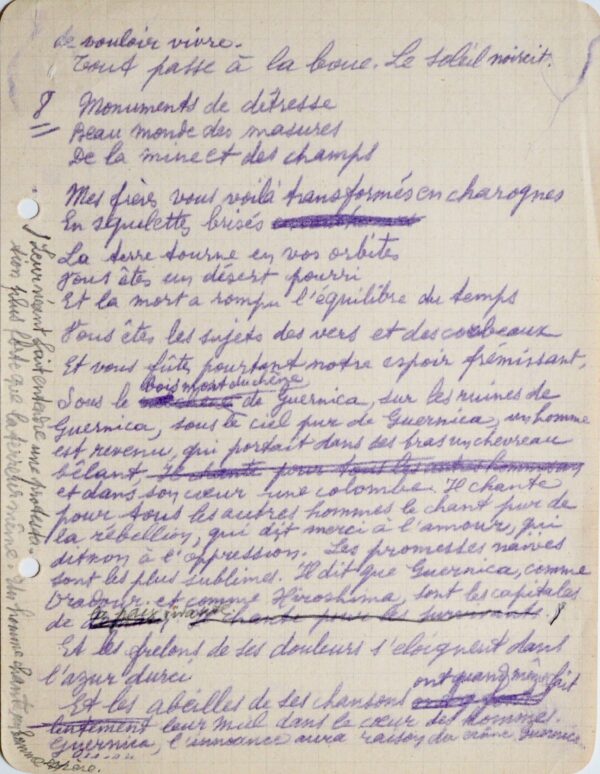 de vouloir vivre.
Tout passe à la boue. Le soleil noircit.
8 Monuments de détresse
Beau monde des masures
De la mine et des champs
Mes frères vous voilà transformés en charognes
En squelettes brisés
La terre tourne en vos orbites
Vous êtes un désert pourri
Et la mort a rompu l'équilibre du temps
Vous êtes les sujets des vers et des corbeaux
Et vous fûtes pourtant notre espoir frémissant.
bois mort du chêne
Sous le de Guernica, sur les ruines de
Guernica, sous le ciel pur de Guernica, un homme
est revenu, qui portait dans ses bras un chevreau
bêlant, Il chante pour tous les autres hommes
et dans son cœur une colombe. Il chante
pour tous les autres hommes le chant pur de
la rébellion, qui dit merci à l'amour, qui
dit non à l'oppression. Les promesses naïves
sont les plus sublimes. Il dit que Guernica, comme
Oradour et comme Hiroshima, sont les capitales
la paix vivante
de Il chante pour les survivants.
Et les frelons de ses douleurs s'éloignent dans
l'azur durci
ont quand même fait
Et les abeilles de ses chansons
lentement leur miel dans le cœur des hommes.
Guernica, l'innocence aura raison du crime. Guernica.
Leur néant fait entendre une protesta-
tion plus forte que la terreur même. Un homme chante un homme
espère.